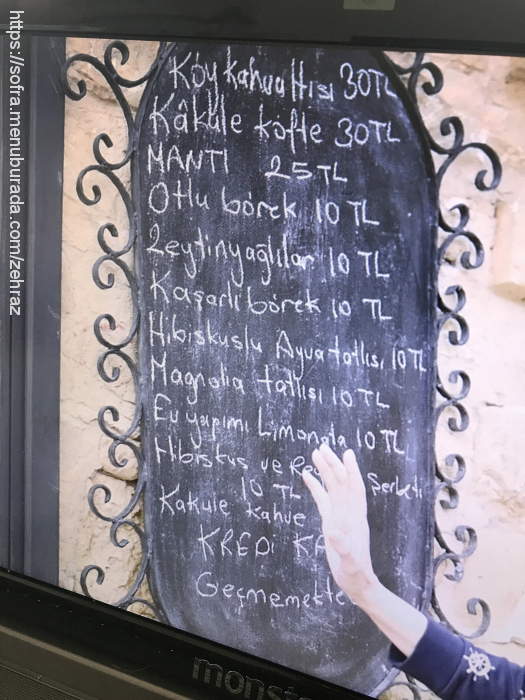 https://sofra.menuburada.com/zehraz
Köy kahvaltısı 30TL
Kâküle köfte 30TL
MANTI 25TL
Otlu börek 10 TL
Zeytinyağlılar 10 TL
Kaşarlı börek 10 TL
Hibiskuslu Ayva tatlısı 10TL
Magnolia tatlısı 10 TL
Ev yapımı Limonata 10 TL
Hibiskus ve Şerbeti
10 TL
Kakule kahve
KREDİ
Geçmemekte